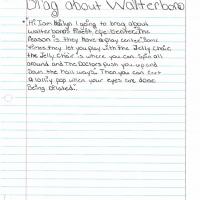 Brag about Walterboro
Hi I am Ashlyn I going to brag about
Walterboros eye center. The
reason is they have a play center. Some
times they let you play with the Jelly Chair.
the Jelly Chair is where you can spin all
around and The Doctors push you up and
Down the hall ways. Then you can get
a lolly pop when your eyes are done
Being dilated.